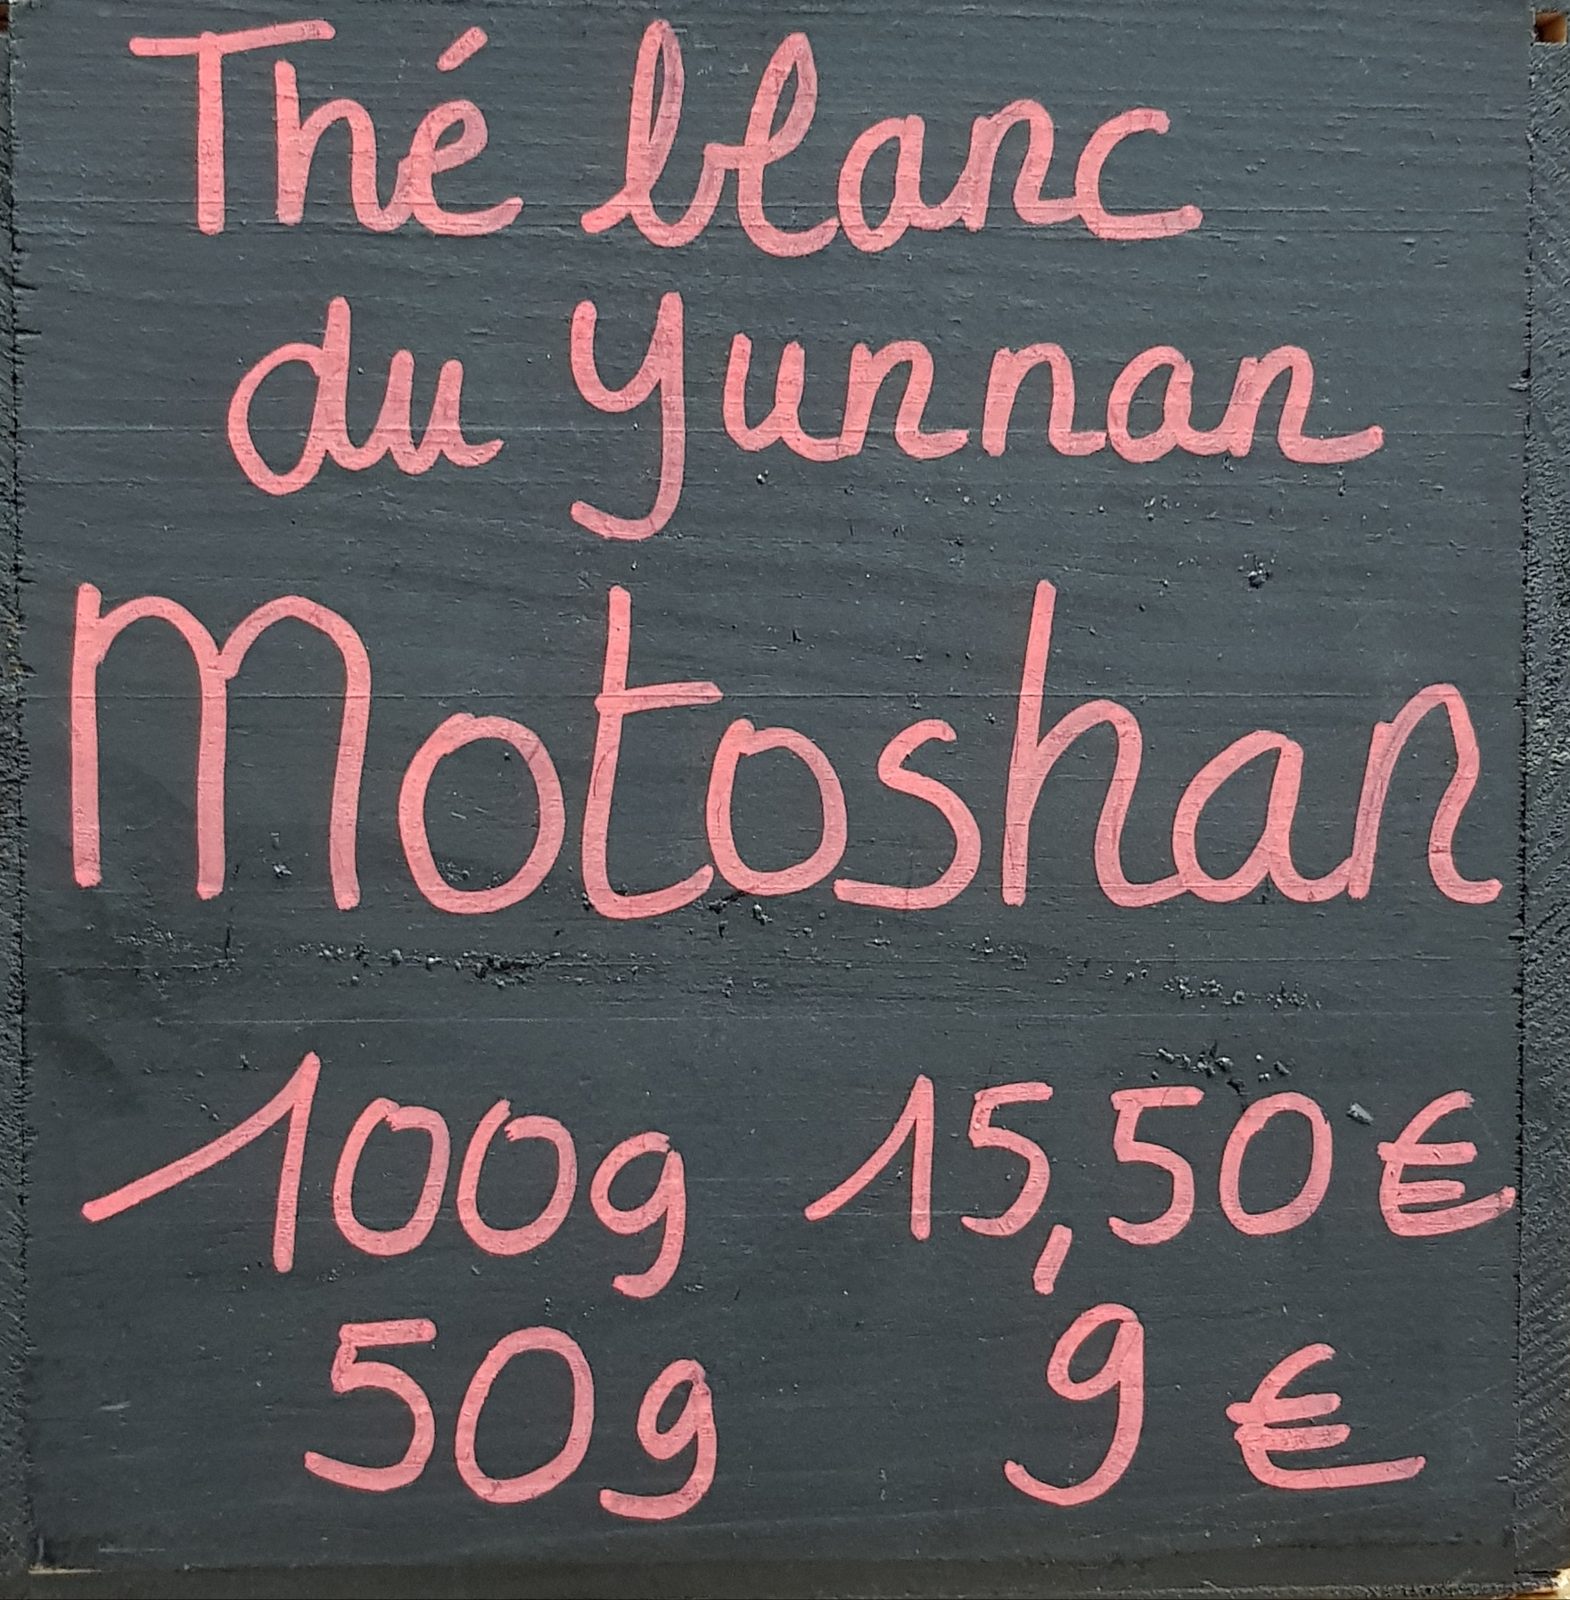 Thé blanc
du Yunnan
Motoshan
100g 15,50 €
50g 9 €